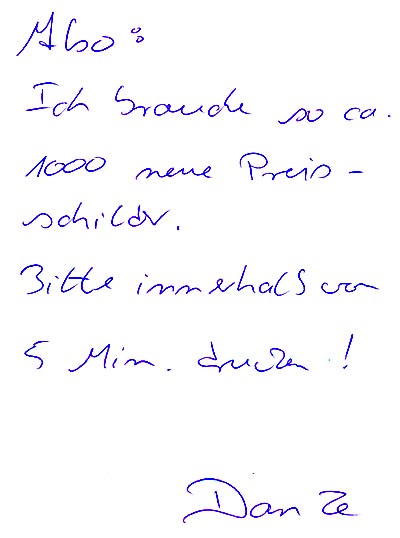 Also:
Ich brauche so ca.
1000 neue Preis-
schilder.
Bitte innerhalb von
5 Min. drucken!
Danke